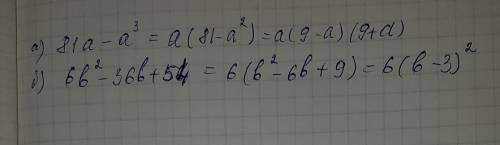 а) 81a - a³ = a(81-a²) = a(9-a)(9+a)
б) 6b² - 36b + 54 = 6(b² - 6b + 9) = 6(b - 3)²